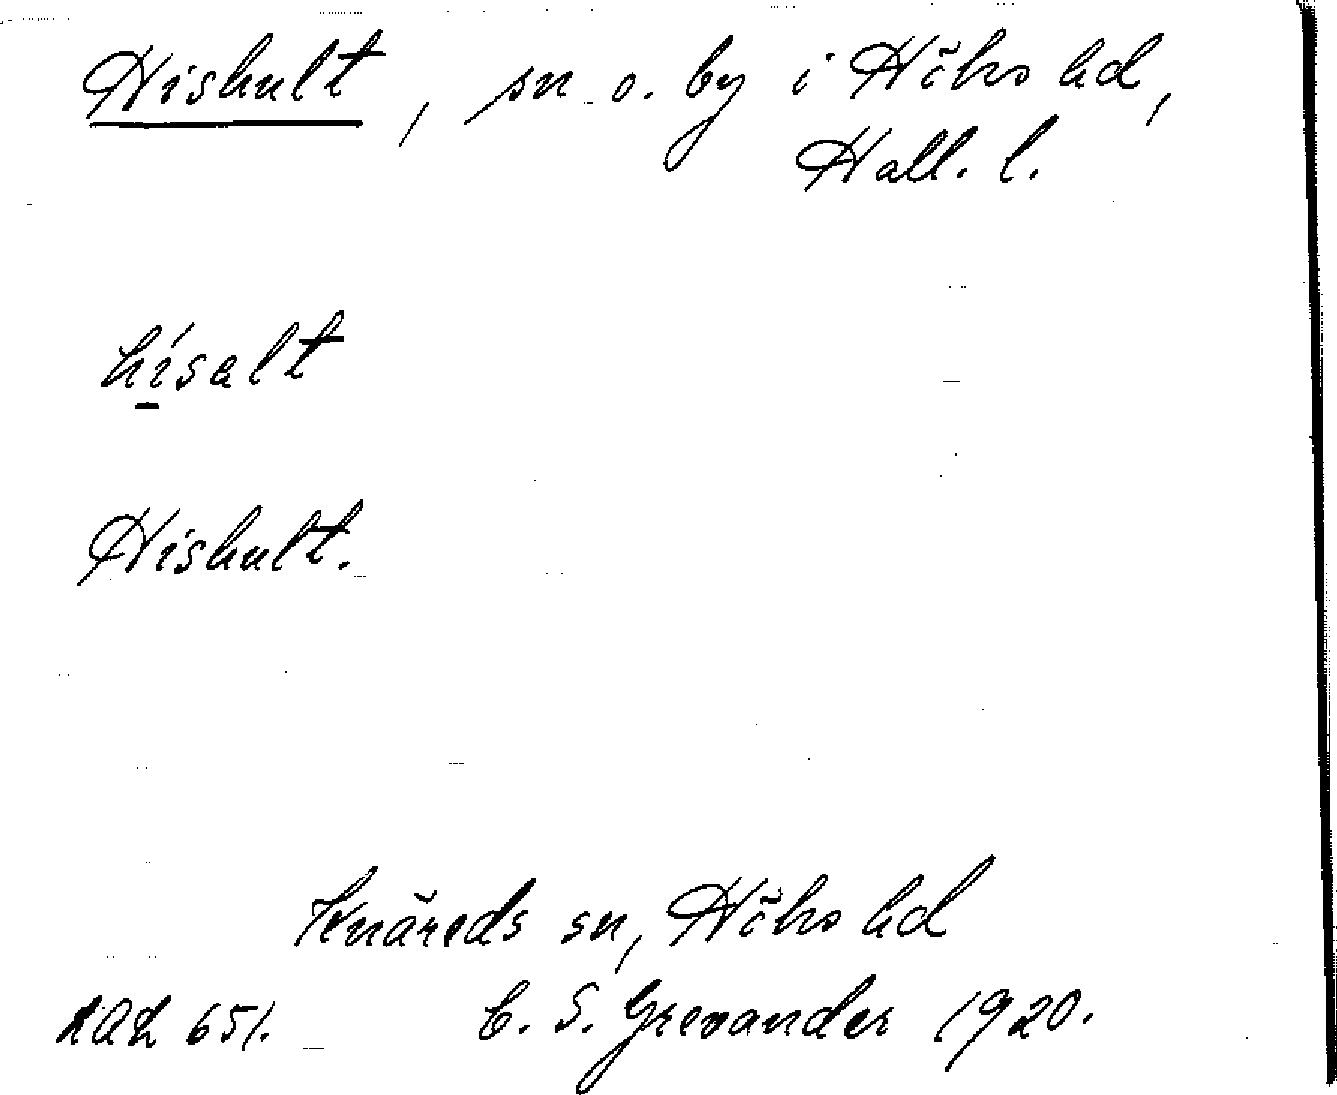 Hishult, sn o. by i Höks hd,
Hall. l.
hísalt
Hishult.
Knäreds sn, Höks hd
LAL 651. C. S. Grevander 1920.